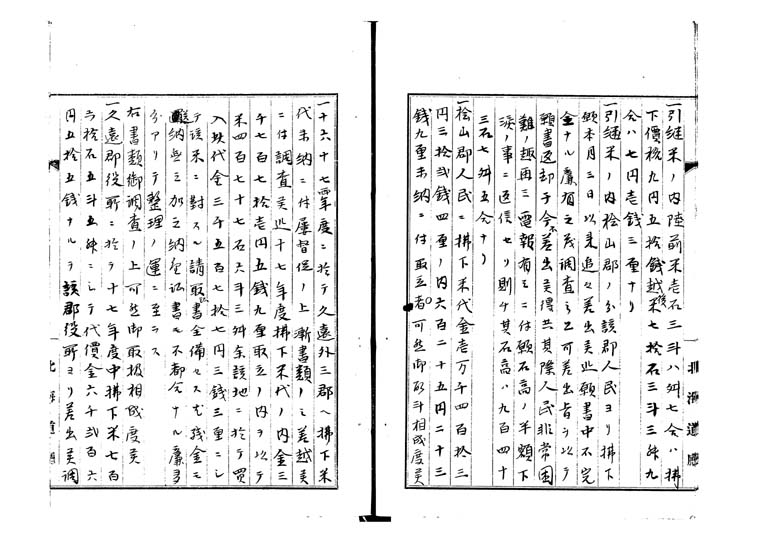 一引継米ノ内陸前米壱石三斗八舛七合ハ拂
下價格九円五拾銭越後米七拾石三斗三舛九
合ハ七円壱銭三厘ナリ
一引継米ノ内桧山郡ノ分該郡人民ヨリ拂下
願本月三日以来追々差出美此願書中不完
全ナル廉有之為調査之可差出旨ヲ以テ
願書返却于今不差出美得共其際人民非常困
難ノ趣再三電報有之ニ付願石高ノ半額下
渡ノ事ニ返信セリ則チ其石高ハ九百四十
三石七舛五合ナリ
一桧山郡人民ニ拂下米代金壱万千四百拾三
円三拾弐銭四厘ノ内六百二十五円二十三
銭九厘未納ニ付取立者可然御取斗相成度美
一十六十七両年度ニ於テ久遠外三郡ヘ拂下米
代未納ニ付屡督促ノ上漸書類ノミ差越美
ニ付調査美処十七年度拂下米代ノ内金三
千七百七拾壱円五銭九厘取立ノ内ヲ以テ
米四百七十七石六斗三舛余該地ニ於テ買
入此代金三千五百七拾七円三銭三厘ニシ
テ該米ニ對スル請取書全備セス尤残金ハ
納無之加之納金証書等不都合ナル廉多
分アリテ整理ノ運ニ至ラス
右書類御調査ノ上可然御取扱相成度美
一久遠郡役所ニ於テ十七年度中拂下米七百
弐拾石五斗五舛ニシテ代價金六千弐百六
円五拾五銭ナルヲ該郡役所ヨリ差出美調
北海道廳
北海道廳